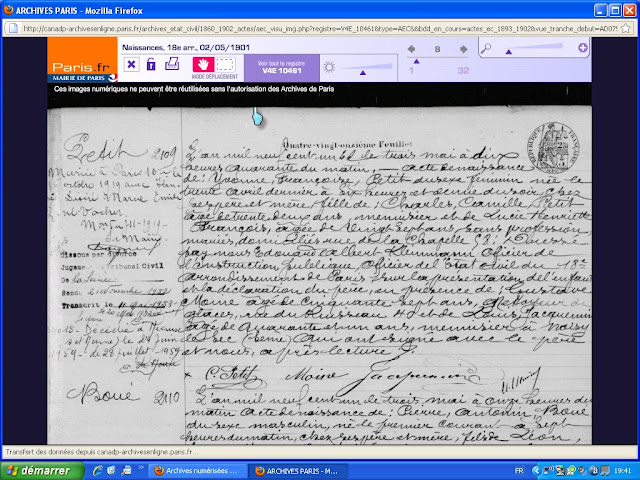 ARCHIVES PARIS - Mozilla Firefox
http://canadp-archivesenligne.paris.fr/archives_etat_civil/1860_1902_actes/aec_visu_img.php?registre=V4E_10461&type=AEC&&bdd_en_cours=actes_ec_1893_1902&vue_tranche_debut=AD075
Paris.fr
MAIRIE DE PARIS
Naissances, 18e arr., 02/05/1901
MODE DÉPLACEMENT
Voir tout le registre
V4E 10461
8
1 32
Ces images numériques ne peuvent être réutilisées sans l'autorisation des Archives de Paris
Quatre-vingt-onzième Feuillet
Petit 2109
Marié à Paris 10e le
octobre 1919 avec
Dissous par divorce
Jugem. Tribunal Civil
de la Seine
Rend.
Transcrit le
L'an mil neuf cent un et le trois mai à dix
heures quarante du matin. — Acte de naissance
de: Yvonne, Françoise, Petit du sexe féminin née le
trente avril dernier à six heures et demie du soir, chez
ses père et mère, fille de: Charles, Camille, Petit
âgé de trente deux ans, menuisier et de Lucie Henriette
François, âgée de vingt sept ans, sans profession,
mariés, domiciliés rue de la Chapelle 98. Dressé
par nous Edouard Albert Kleinmann Officier de
l'Instruction publique, Officier de l'Etat Civil du 18e
arrondissement de Paris, sur la présentation de l'enfant
et la déclaration du père, en présence de: Gustave
Moine âgé de cinquante sept ans,
glaces, rue du Ruisseau 40 et de Louis, Jacquemin
âgé de quarante et un ans, menuisier à Noisy
le sec (Seine) qui ont signé avec le père
et nous, après lecture
C. Petit Moine Jacquemin
Boué 2110
L'an mil neuf cent un le trois mai à onze heures du
matin Acte de naissance de: Pierre, Antonin, Boué
du sexe masculin, né le premier courant à sept
heures du matin, chez ses père et mère, fils de Léon,
Transfert des données depuis canadp-archivesenligne.paris.fr...
démarrer
Archives numérisées ...
ARCHIVES PARIS - M...
FR
19:41